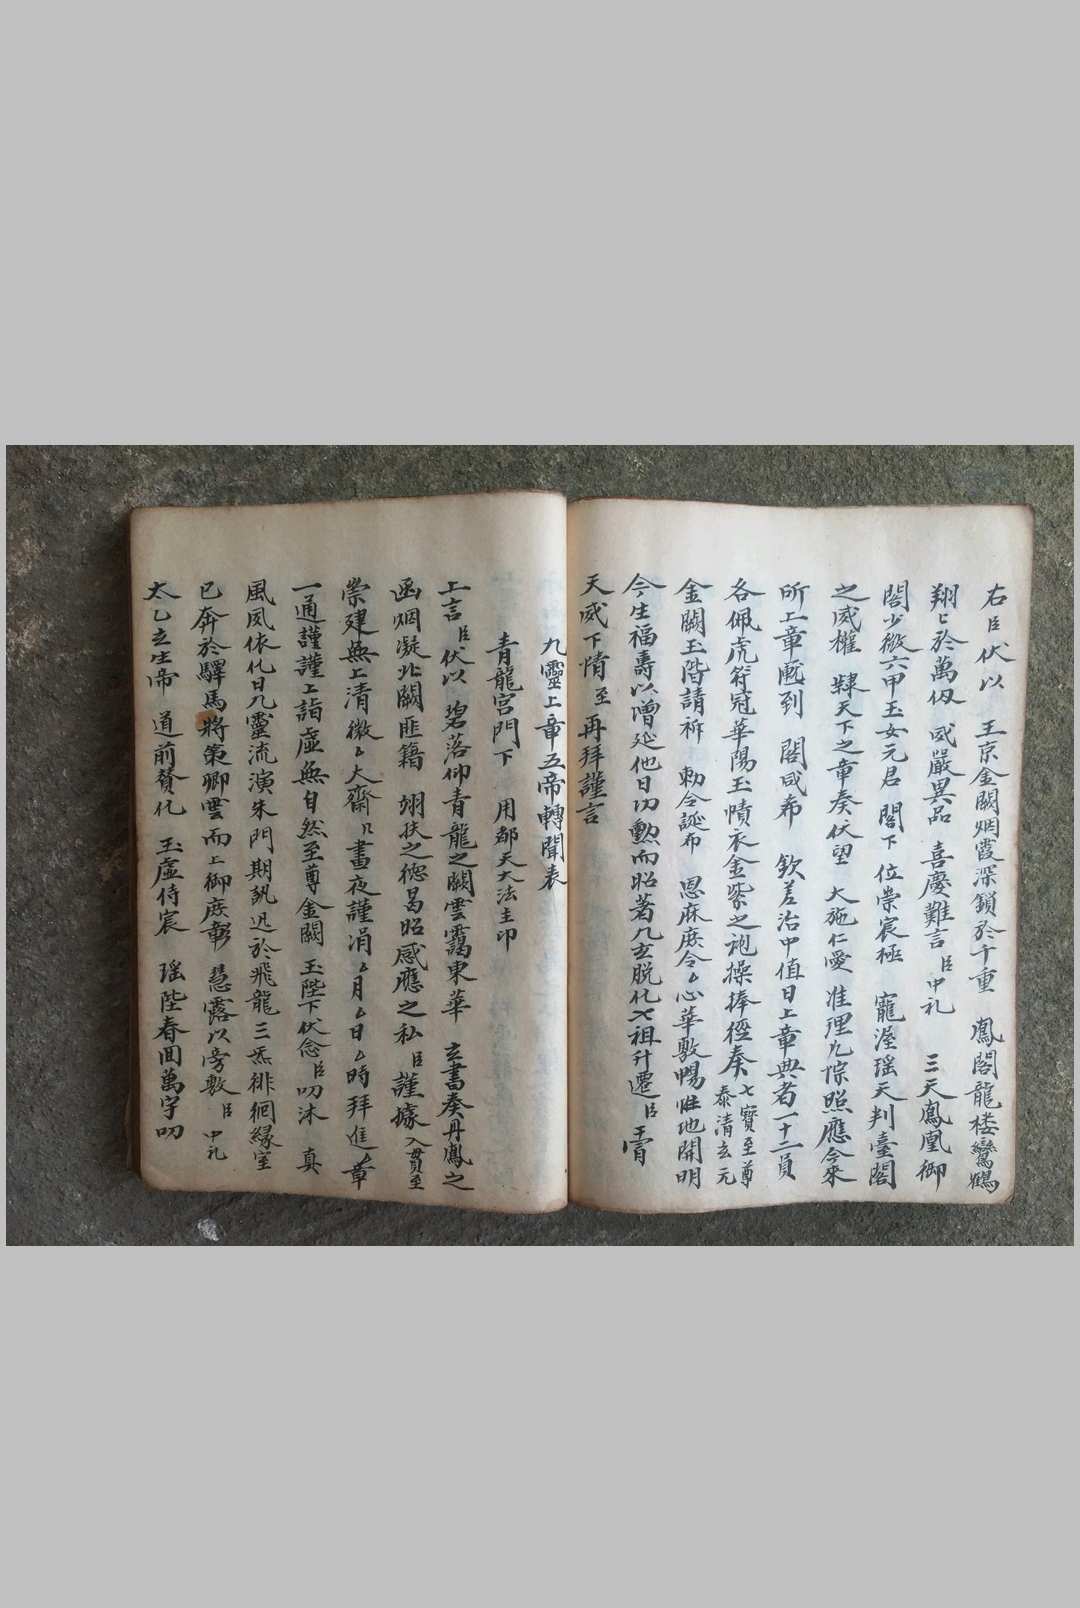 右臣伏以 玉京金闕烟霞深鎖於千重 鳳閣龍楼鸞鶴
翔匕於萬仭 威嚴異品 喜慶難言臣中礼 三天鳳凰御
閣少微六甲玉女元君 閣下位崇宸極 寵渥瑶天判臺閣
之威權 肆天下之章奏伏望 大施仁愛 准理凡悰照應令來
所上章甎到 閣咸希 欽差治中值日上章典者一十二員
各佩虎符冠華陽玉幘衣金紫之袍操捧徑奏七寶至尊泰清玄元
金闕玉階請祈 勅令誕布 恩庥庶令厶心華敷暢性地開明
今生福壽以增延他日功勲而昭著九玄脱化七祖升遷臣干冒
天威下情至再拜謹言
九靈上章五帝轉聞表
青龍宫門下 用都天大法主印
上言臣伏以 碧落仰青龍之闕雲靄東華 玄書奏丹鳳之
函烟凝北闕匪籍 翊扶之德曷昭感應之私臣謹據入貫至
崇建無上清微厶大齋几晝夜謹涓厶月厶日厶時拜進章
一通謹謹上詣虚無自然至尊金闕 玉陛下伏念臣叨沐 真
風夙依化日九靈流演朱門期訊迅於飛龍三炁徘徊緑室
已奔於驛馬將策卿雲而上御庶彰 慧露以旁敷臣中礼
太乙玄生帝 道前贊化 玉虚侍宸 瑶陛春回萬宇叨